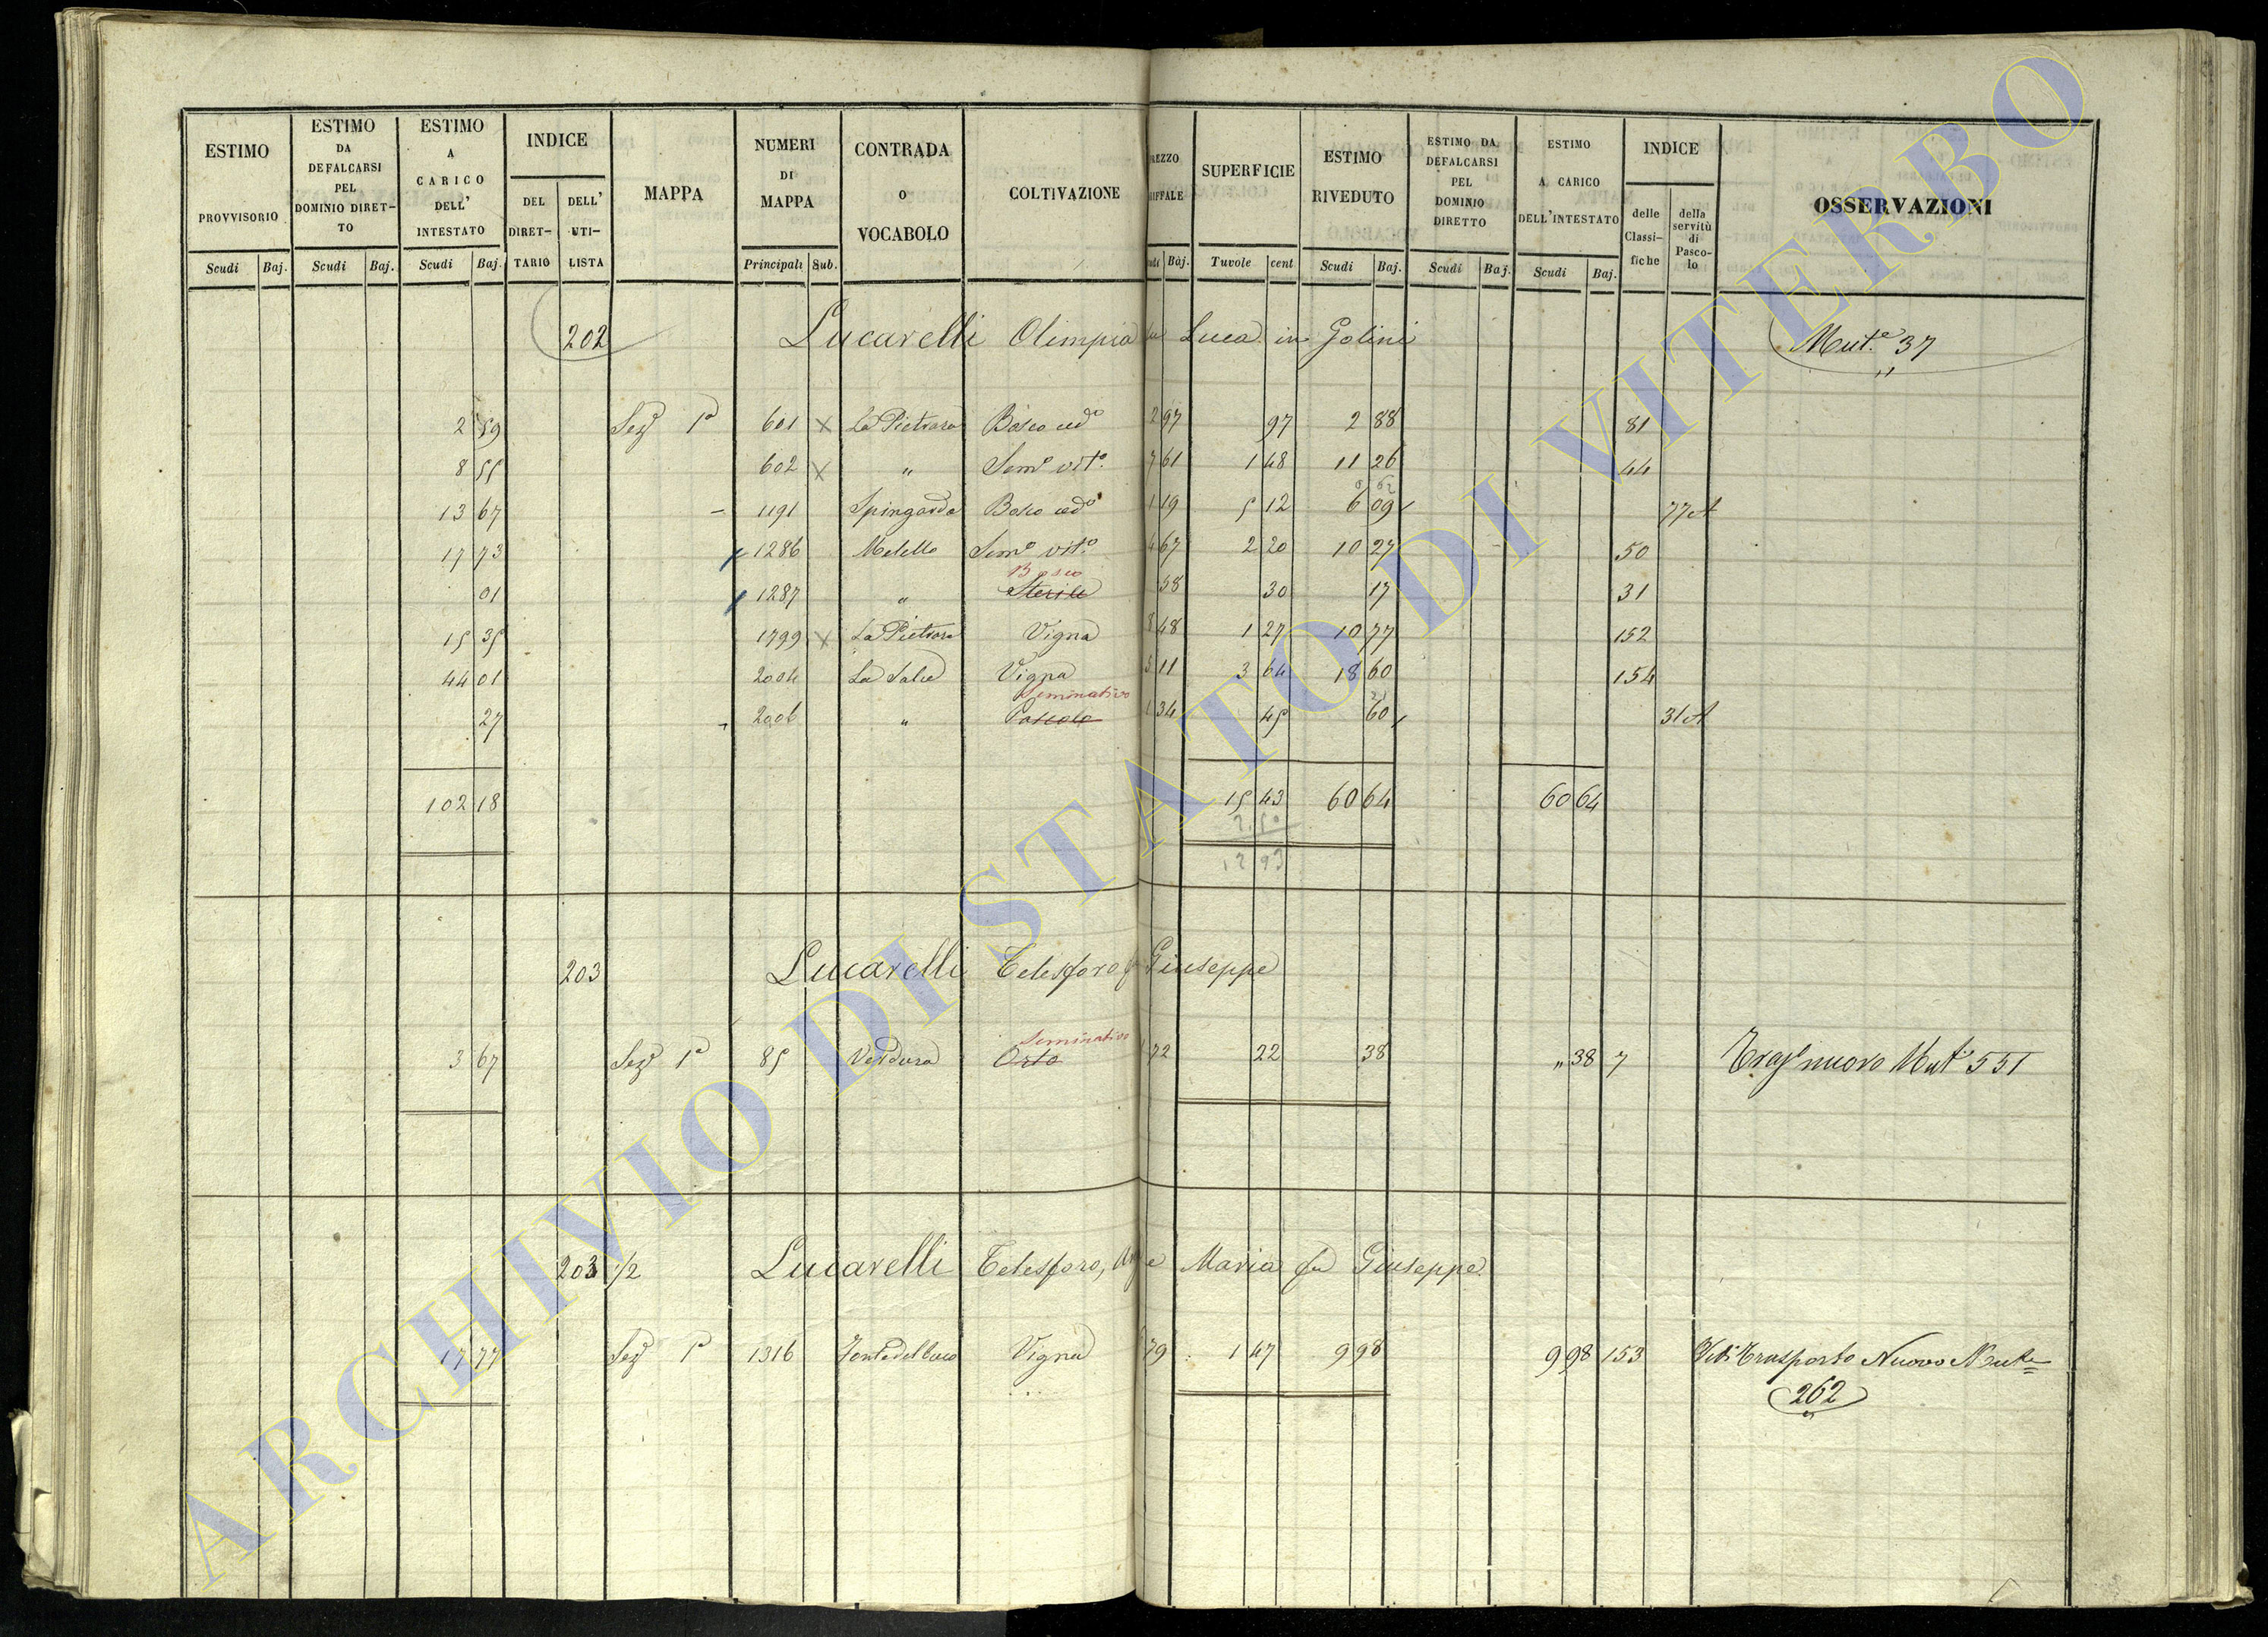 ESTIMO PROVVISORIO Scudi Baj.
ESTIMO DA DEFALCARSI PEL DOMINIO DIRET-TO Scudi Baj.
ESTIMO A CARICO DELL' INTESTATO Scudi Baj.
INDICE DEL DIRET-TARIO DELL' UTI-LISTA
MAPPA
NUMERI DI MAPPA Principali Sub.
CONTRADA O VOCABOLO
COLTIVAZIONE
REZZO IFFALE Baj.
SUPERFICIE Tavole cent
ESTIMO RIVEDUTO Scudi Baj.
ESTIMO DA DEFALCARSI PEL DOMINIO DIRETTO Scudi Baj.
ESTIMO A CARICO DELL'INTESTATO Scudi Baj.
INDICE delle Classi-fiche della servitù di Pasco-lo
OSSERVAZIONI
202 Lucarelli Olimpia Luca in Golini Mut.e 37
2 59 Sez 1a 601 x La Pietrara Bosco cedo 2 97 97 2 88 81
8 55 602 x " Semo vito. 7 61 1 48 11 26 44
13 67 - 1191 Spingarda Bosco cedo 1 19 5 12 6 09 77 A
17 73 1286 Melello Semo vito. 4 67 2 20 10 27 50
01 1287 " Bosco Sterile 58 30 17 31
15 35 1799 x La Pietrara Vigna 8 48 1 27 10 77 152
44 01 2004 La Salce Vigna 5 11 3 64 18 60 154
27 - 2006 " Seminativo Pascolo 1 34 45 60 31 A
102 18 15 43 60 64 60 64
2.50
12 93
203 Lucarelli Telesforo fu Giuseppe
3 67 Sez 1a 85 Verdura Seminativo Orto 1 72 22 38 " 38 7 nuovo Mut 551
203 1/2 Lucarelli Telesforo, e Maria fu Giuseppe
17 77 Sez 1a 1316 Vigna 79 1 47 9 98 9 98 153 Vedi Trasporto Nuovo
262
ARCHIVIO DI STATO DI VITERBO